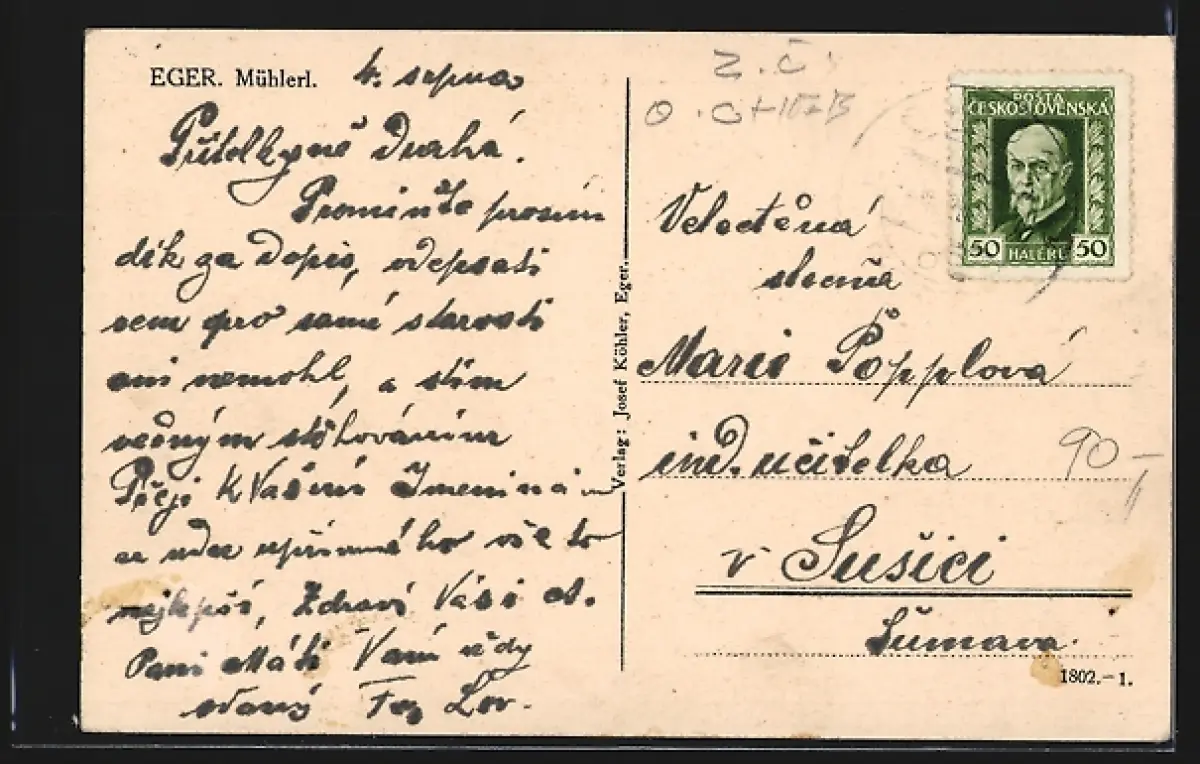 EGER. Mühlerl.
4. srpna
Přítelkyně Drahá.
Promiňte prosím
dík za Dopis, odepsati
sem pro samé starosti
ani nemohl, a stím
věčným stěhováním
Přeji k Vašim Jmeninám
ze srdce upřímného vše to
nejlepší, Zdraví Vási ct.
Paní Máti Vám vždy
oddaný Frz Lov.
Verlag: Josef Köhler, Eger.
Z. Č.
O. CHEB
POŠTA
ČESKOSLOVENSKÁ
50 HALÉŘŮ 50
Velectěná
slečna
Marie Popplová
ind. učitelka
90-
v Sušici
Šumava.
1802.-1.